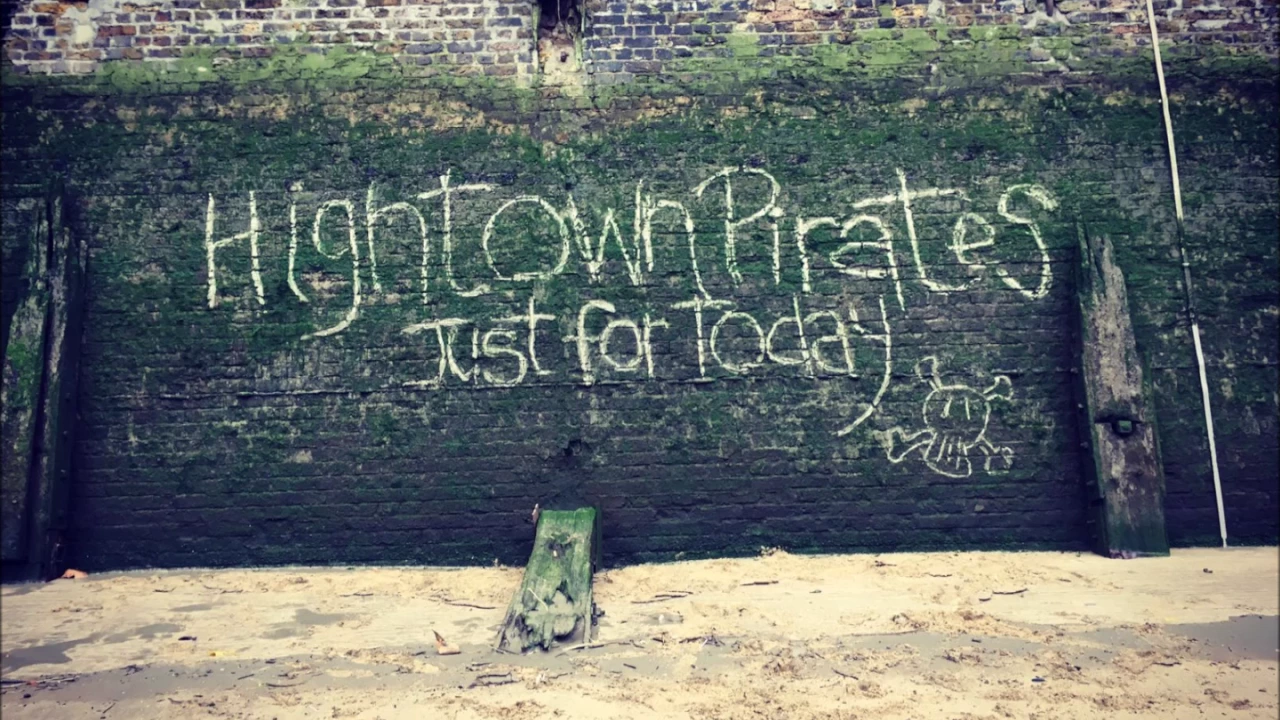 HighTown Pirates
Just for Today